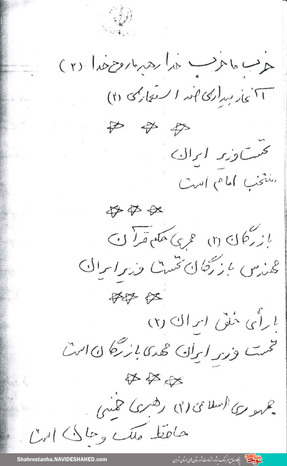 حزب ما حزب خدا رهبر ما روح خدا (۲)
آغاز بیداری ضد استعماری (۲)
نخست وزیر ایران
منتخب امام است
بازرگان (۲) مجری حکم قرآن
مهندس بازرگان نخست وزیر ایران
با رأی خلق ایران (۲)
نخست وزیر ایران مهدی بازرگان است
جمهوری اسلامی (۲) رهبری خمینی
حافظ ملک و جان است
Shahrestanha.NAVIDESHAHED.com